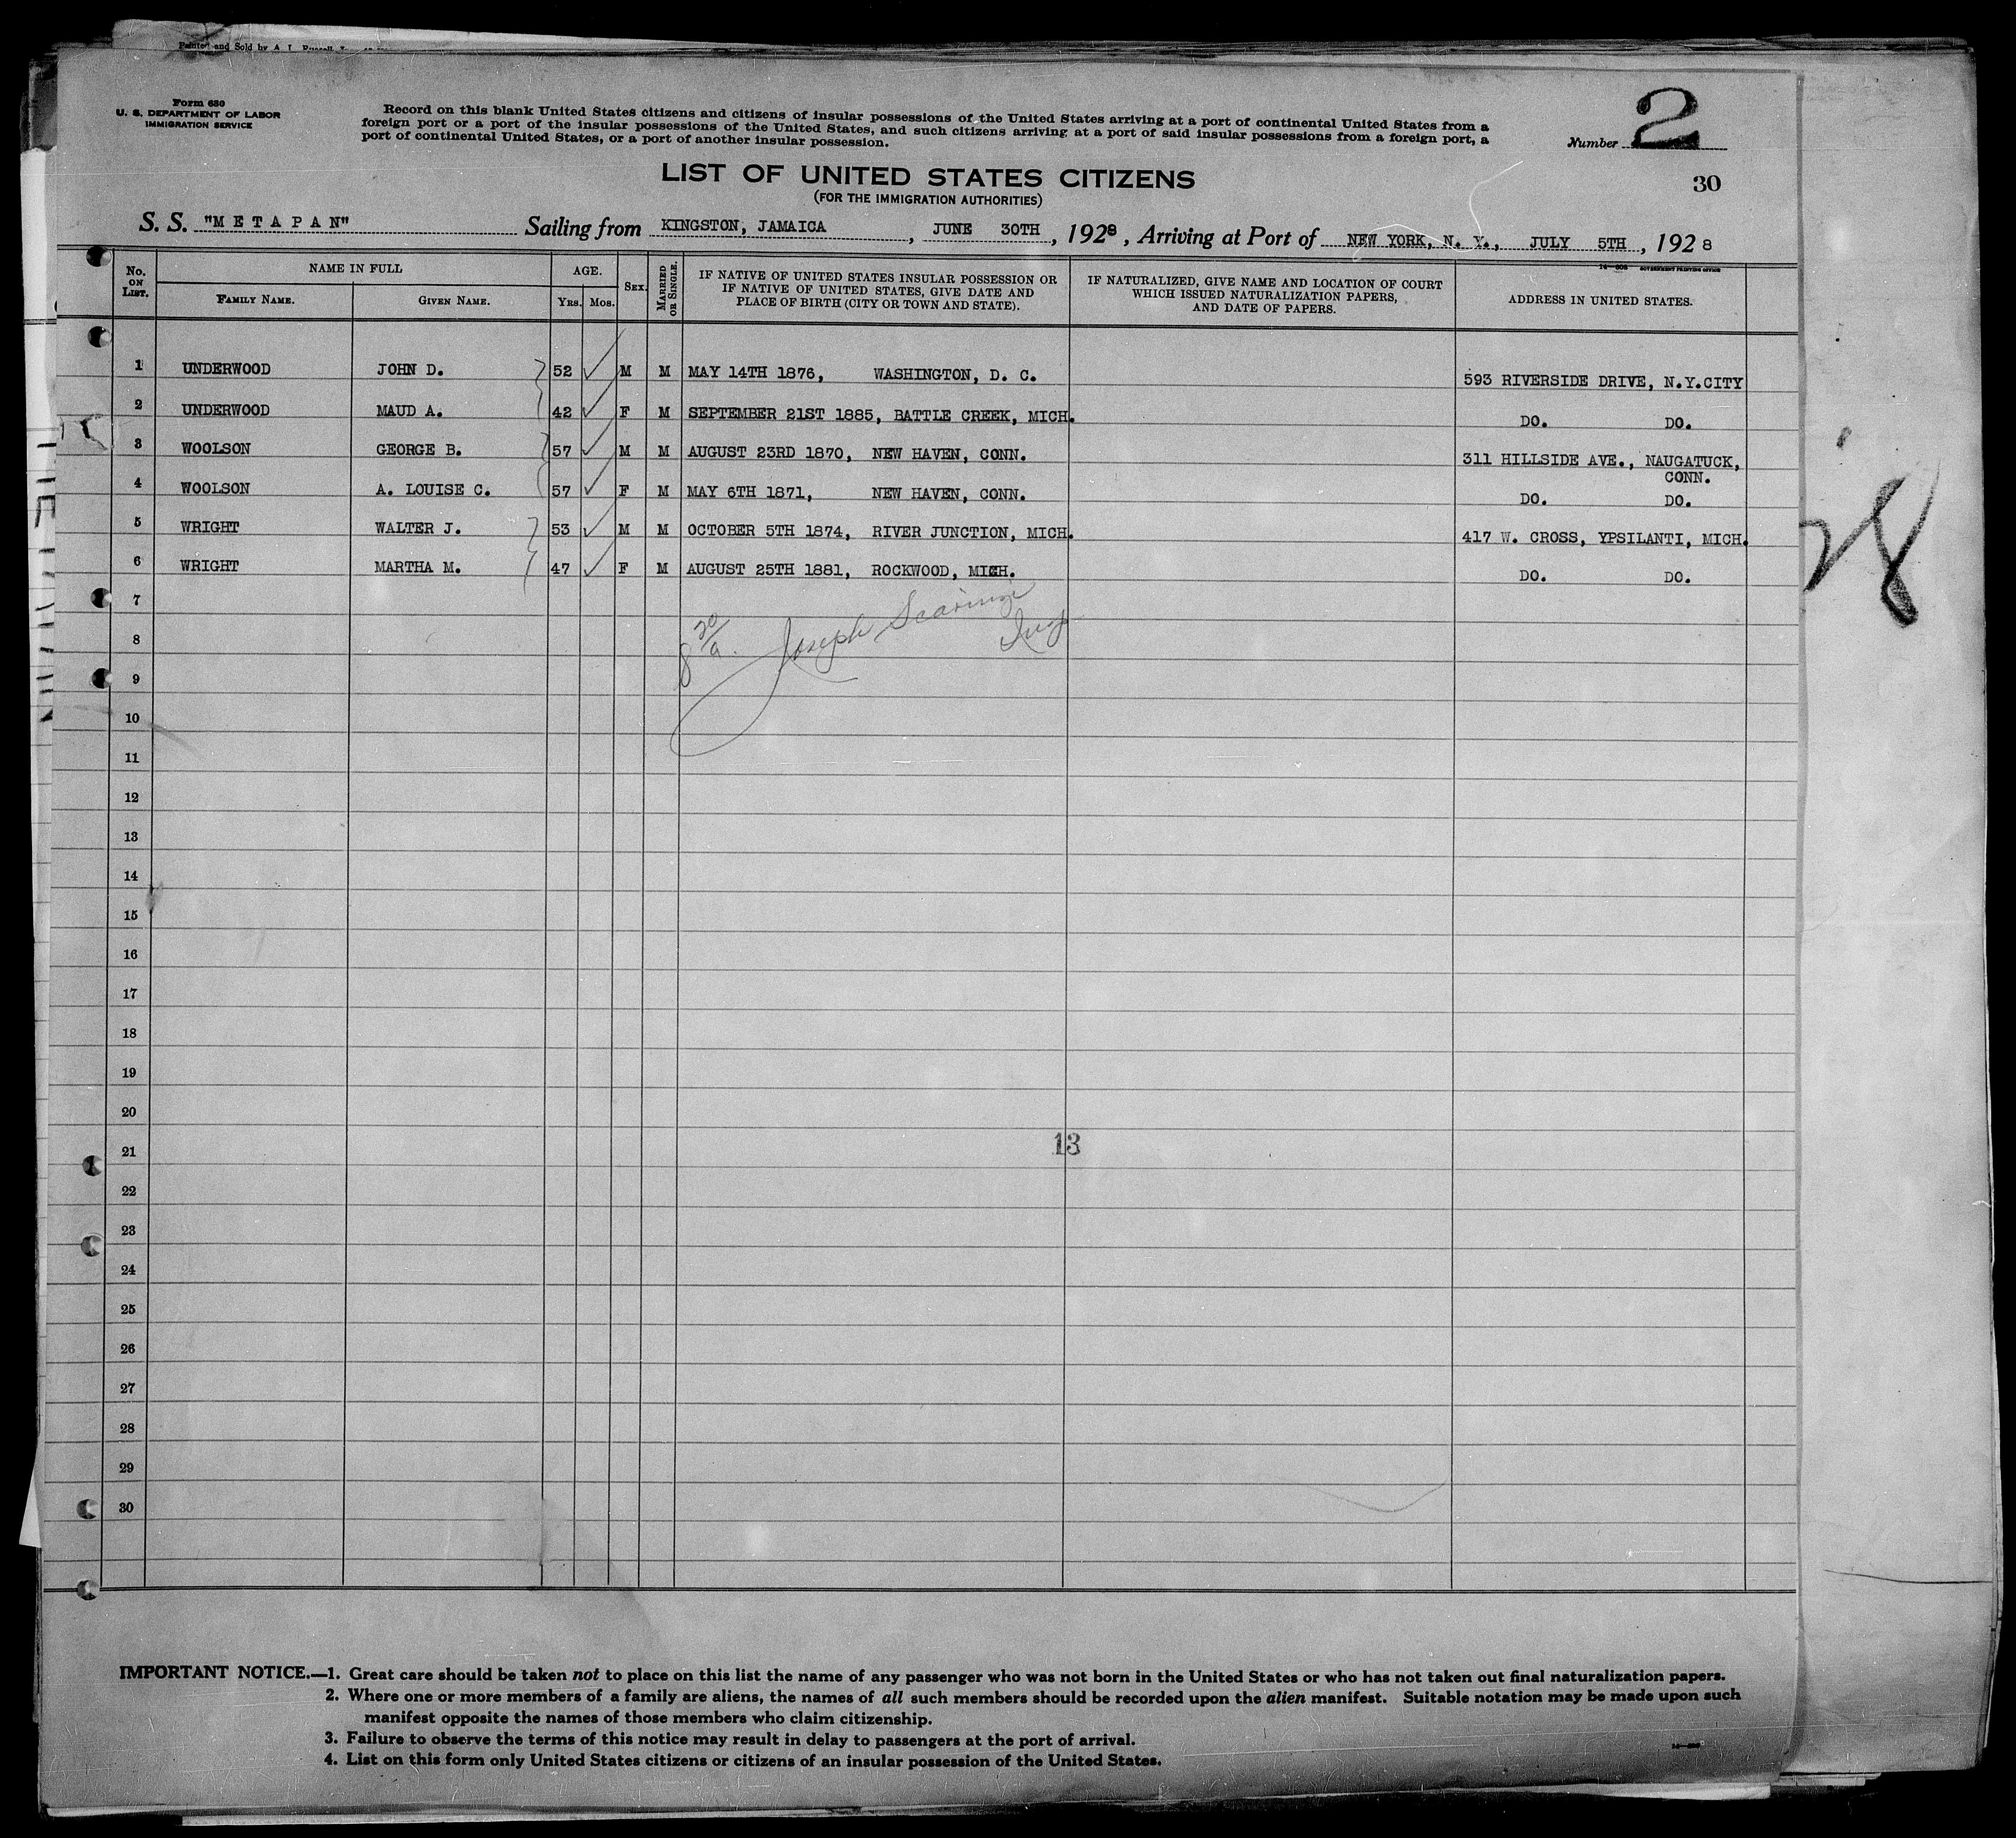 Printed and Sold by A. L.
Form 630
U. S. DEPARTMENT OF LABOR
IMMIGRATION SERVICE
Record on this blank United States citizens and citizens of insular possessions of the United States arriving at a port of continental United States from a
foreign port or a port of the insular possessions of the United States, and such citizens arriving at a port of said insular possessions from a foreign port, a
port of continental United States, or a port of another insular possession.
Number 2
LIST OF UNITED STATES CITIZENS
30
(FOR THE IMMIGRATION AUTHORITIES)
S. S. "METAPAN" Sailing from KINGSTON, JAMAICA, JUNE 30TH, 1928, Arriving at Port of NEW YORK, N. Y., JULY 5TH, 1928
GOVERNMENT PRINTING OFFICE
No. ON LIST. NAME IN FULL FAMILY NAME. GIVEN NAME. AGE. YRS. MOS. SEX. MARRIED OR SINGLE. IF NATIVE OF UNITED STATES INSULAR POSSESSION OR IF NATIVE OF UNITED STATES, GIVE DATE AND PLACE OF BIRTH (CITY OR TOWN AND STATE). IF NATURALIZED, GIVE NAME AND LOCATION OF COURT WHICH ISSUED NATURALIZATION PAPERS, AND DATE OF PAPERS. ADDRESS IN UNITED STATES.
1 UNDERWOOD JOHN D. 52 ✓ M M MAY 14TH 1876, WASHINGTON, D. C. 593 RIVERSIDE DRIVE, N.Y.CITY
2 UNDERWOOD MAUD A. 42 ✓ F M SEPTEMBER 21ST 1885, BATTLE CREEK, MICH. DO. DO.
3 WOOLSON GEORGE B. 57 ✓ M M AUGUST 23RD 1870, NEW HAVEN, CONN. 311 HILLSIDE AVE., NAUGATUCK, CONN.
4 WOOLSON A. LOUISE C. 57 ✓ F M MAY 6TH 1871, NEW HAVEN, CONN. DO. DO.
5 WRIGHT WALTER J. 53 ✓ M M OCTOBER 5TH 1874, RIVER JUNCTION, MICH. 417 W. CROSS, YPSILANTI, MICH.
6 WRIGHT MARTHA M. 47 ✓ F M AUGUST 25TH 1881, ROCKWOOD, MICH. DO. DO.
28
7
8 8 20/a. Joseph Scaringi Insp
9
10
11
12
13
14
15
16
17
18
19
20
21 13
22
23
24
25
26
27
28
29
30
IMPORTANT NOTICE.—1. Great care should be taken not to place on this list the name of any passenger who was not born in the United States or who has not taken out final naturalization papers.
2. Where one or more members of a family are aliens, the names of all such members should be recorded upon the alien manifest. Suitable notation may be made upon such
manifest opposite the names of those members who claim citizenship.
3. Failure to observe the terms of this notice may result in delay to passengers at the port of arrival.
4. List on this form only United States citizens or citizens of an insular possession of the United States.